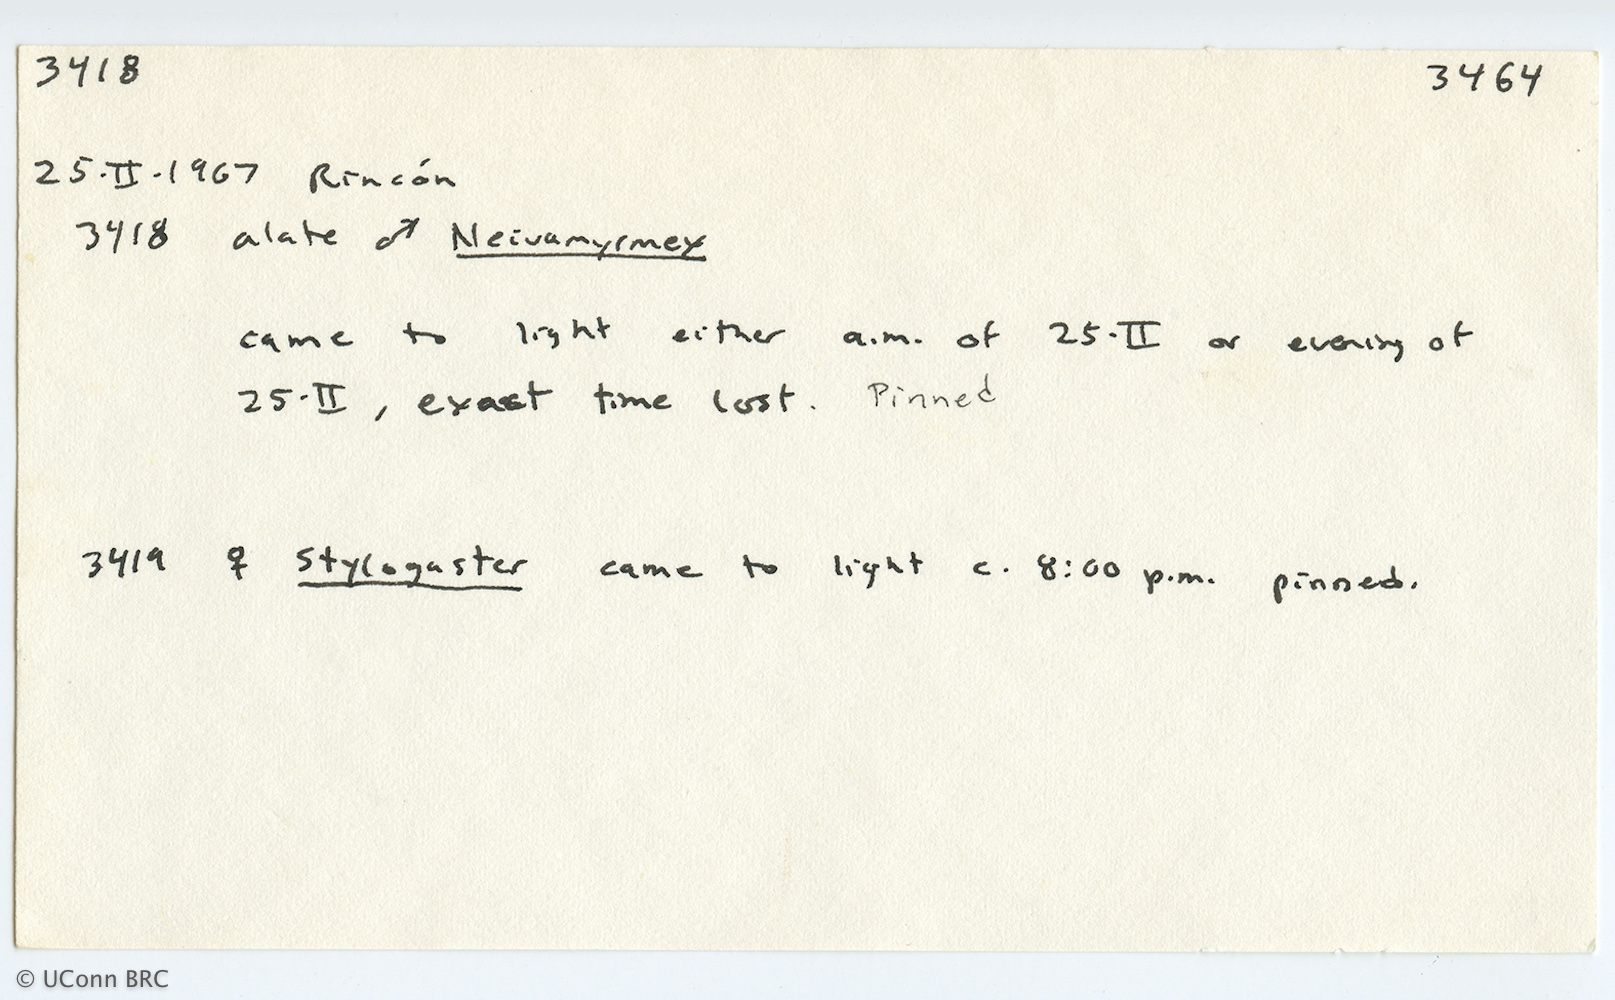 3418 3464
25·II·1967 Rincón
3418 alate ♂ Neivamyrmex
came to light either a.m. of 25·II or evening of
25·II, exact time lost. Pinned
3419 ♀ Stylogaster came to light c. 8:00 p.m. pinned.
© UConn BRC